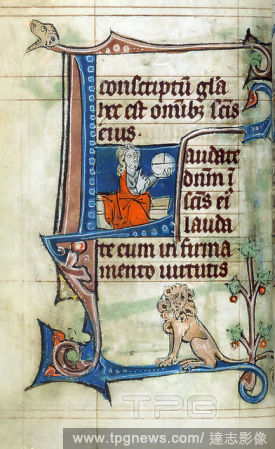 conscriptū gl̄a
hec est om̄ibꝫ sc̄is
eius.
Laudate
dn̄m ī
sc̄is ei
lauda
te eum in firma
mento uirtutis
TPG
www.tpgnews.com/達志影像